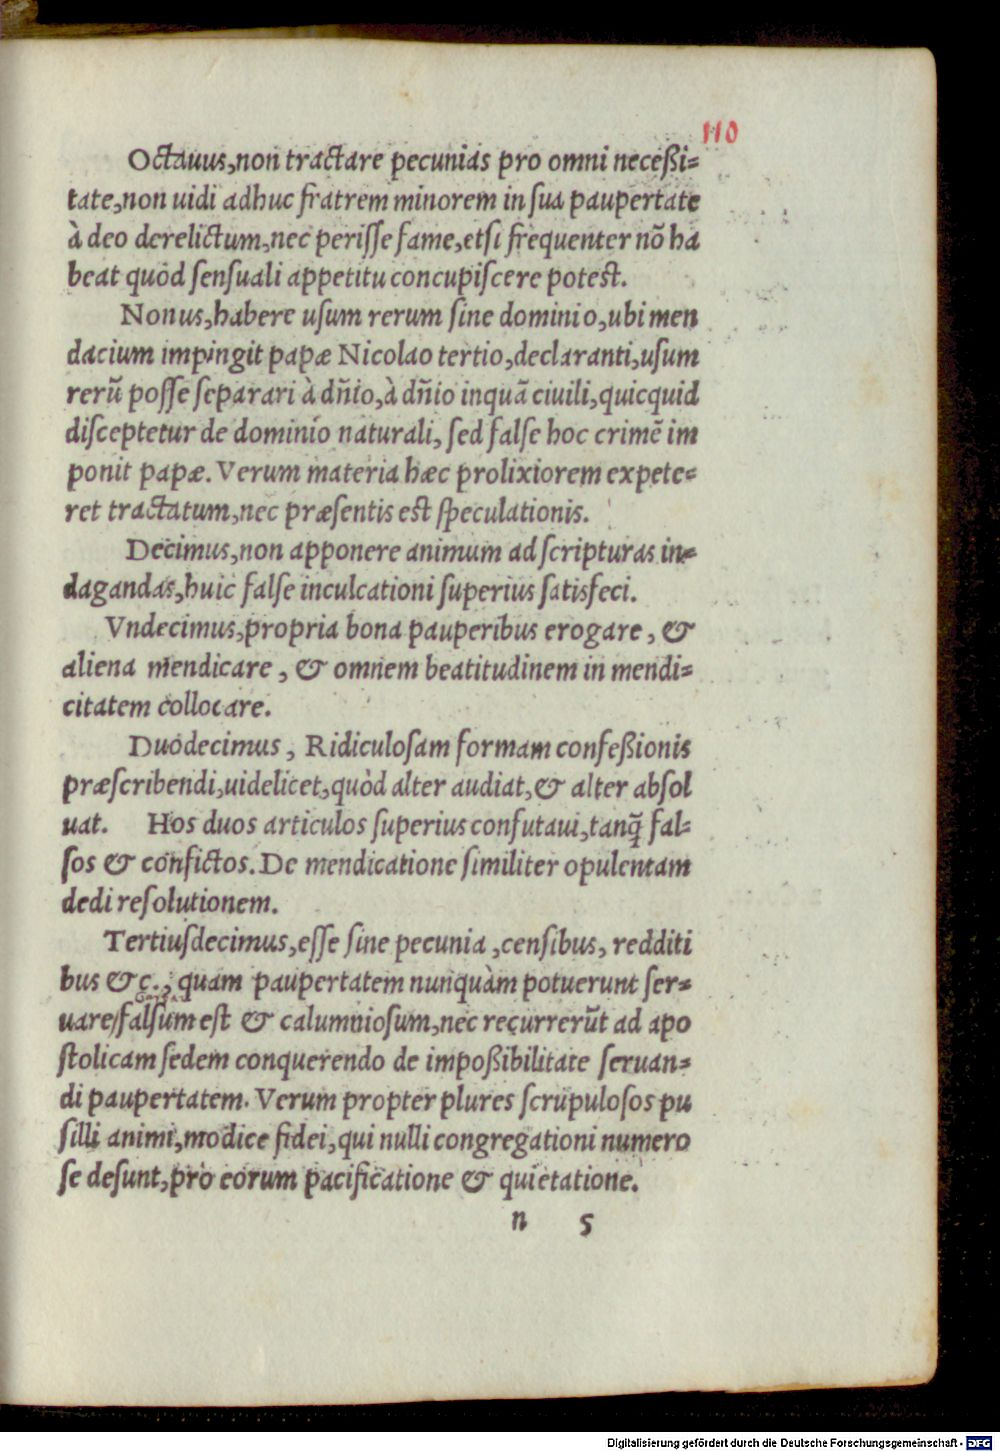 110
Octauus, non tractare pecunias pro omni neceßi-
tate, non uidi adhuc fratrem minorem in sua paupertate
à deo derelictum, nec perisse fame, etsi frequenter nõ ha
beat quòd sensuali appetitu concupiscere potest.
Nonus, habere usum rerum sine dominio, ubi men
dacium impingit papæ Nicolao tertio, declaranti, usum
rerũ posse separari à dñio, à dñio inquã ciuili, quicquid
disceptetur de dominio naturali, sed false hoc crimẽ im
ponit papæ. Verum materia hæc prolixiorem expete-
ret tractatum, nec præsentis est speculationis.
Decimus, non apponere animum ad scripturas in-
dagandas, huic false inculcationi superius satisfeci.
Vndecimus, propria bona pauperibus erogare, &
aliena mendicare, & omnem beatitudinem in mendi-
citatem collocare.
Duodecimus, Ridiculosam formam confeßionis
præscribendi, uidelicet, quòd alter audiat, & alter absol
uat. Hos duos articulos superius confutaui, tanq̃ fal-
sos & confictos. De mendicatione similiter opulentam
dedi resolutionem.
Tertiusdecimus, esse sine pecunia, censibus, redditi
bus &c., quam paupertatem nunquàm potuerunt ser-
uare/ falsum est & calumniosum, nec recurrerũt ad apo
stolicam sedem conquerendo de impoßibilitate seruan-
di paupertatem. Verum propter plures scrupulosos pu
silli animi, modice fidei, qui nulli congregationi numero
se desunt, pro eorum pacificatione & quietatione.
n 5
Digitalisierung gefördert durch die Deutsche Forschungsgemeinschaft - DFG